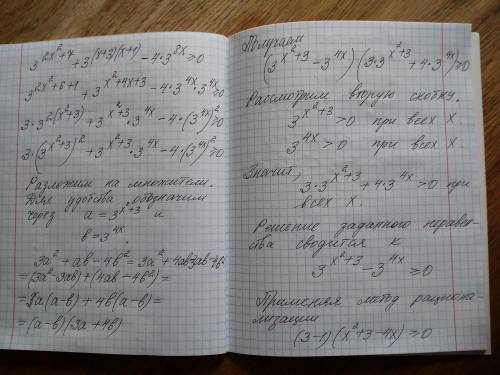 3^{2x²+7} + 3^{(x+3)(x+1)} - 4·3^{8x} ≥ 0
3^{2x²+6+1} + 3^{x²+4x+3} - 4·3^{4x}·3^{4x} ≥ 0
3·3^{2(x²+3)} + 3^{x²+3}·3^{4x} - 4·(3^{4x})² ≥ 0
3·(3^{x²+3})² + 3^{x²+3}·3^{4x} - 4·(3^{4x})² ≥ 0
Разложим на множители.
Для удобства обозначим
через a = 3^{x²+3} и
b = 3^{4x}.
3a² + ab - 4b² = 3a² + 4ab - 3ab - 4b² =
= (3a² - 3ab) + (4ab - 4b²) =
= 3a(a-b) + 4b(a-b) =
= (a-b)(3a+4b)
Получаем
(3^{x²+3} - 3^{4x})(3·3^{x²+3} + 4·3^{4x}) ≥ 0
Рассмотрим вторую скобку.
3^{x²+3} > 0 при всех x
3^{4x} > 0 при всех x.
Значит,
3·3^{x²+3} + 4·3^{4x} > 0 при
всех x.
Решение заданного неравен-
ства сводится к
3^{x²+3} - 3^{4x} ≥ 0
Применяя метод рациона-
лизации
(3-1)(x²+3-4x) ≥ 0